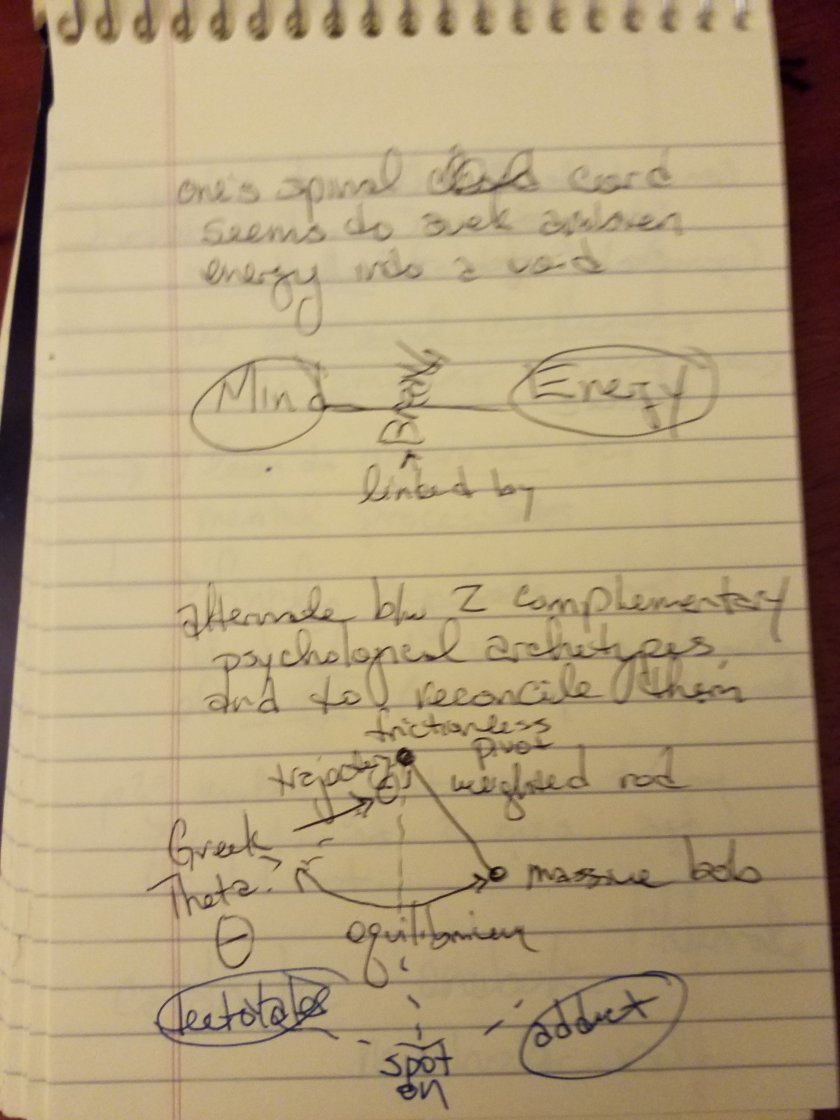 one's spinal cord
seems to suck
energy into a void
Mind
Energy
linked by
alternate btw 2 complementary
psychological archetypes
and to reconcile them
frictionless
pivot
trajectory
weighted rod
Greek
Theta?
θ
massive bob
equilibrium
Θ
teetotaler
addict
spot
on